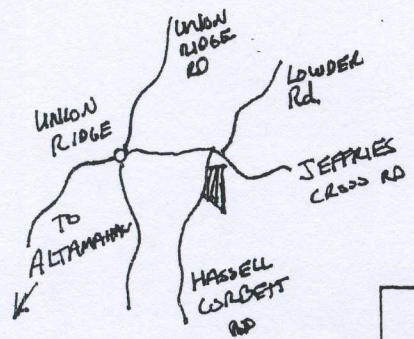 UNION
RIDGE
RD
LOWDER
Rd.
UNION
RIDGE
JEFFRIES
CROSS RD
TO
ALTAMAHAW
HASSELL
CORBETT
RD